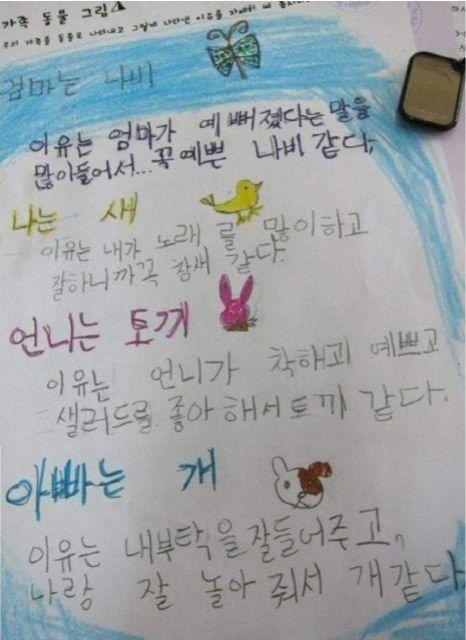 가족 동물 그림
우리 가족을 동물로 나타내고 그렇게 나타낸 이유를 자세히 써
엄마는 나비
이유는 엄마가 예뻐졌다는 말을
많이들어서... 꼭예쁜 나비 같다.
나는 새
이유는 내가 노래 를 많이하고
잘하니까꼭 참새 같다.
언니는 토끼
이유는 언니가 착해괴 예쁘고
샐러드를 좋아 해서토끼 같다.
아빠는 개
이유는 내부탁을잘들어주고,
나랑 잘 놀아 줘서 개같다